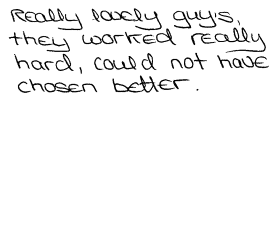 Really lovely guys,
they worked really
hard, could not have
chosen better.